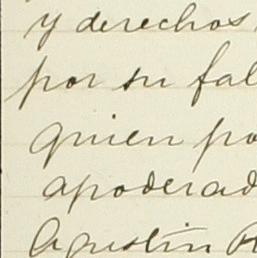 y derechos
por su fal
quien po
apoderad
Agustin R